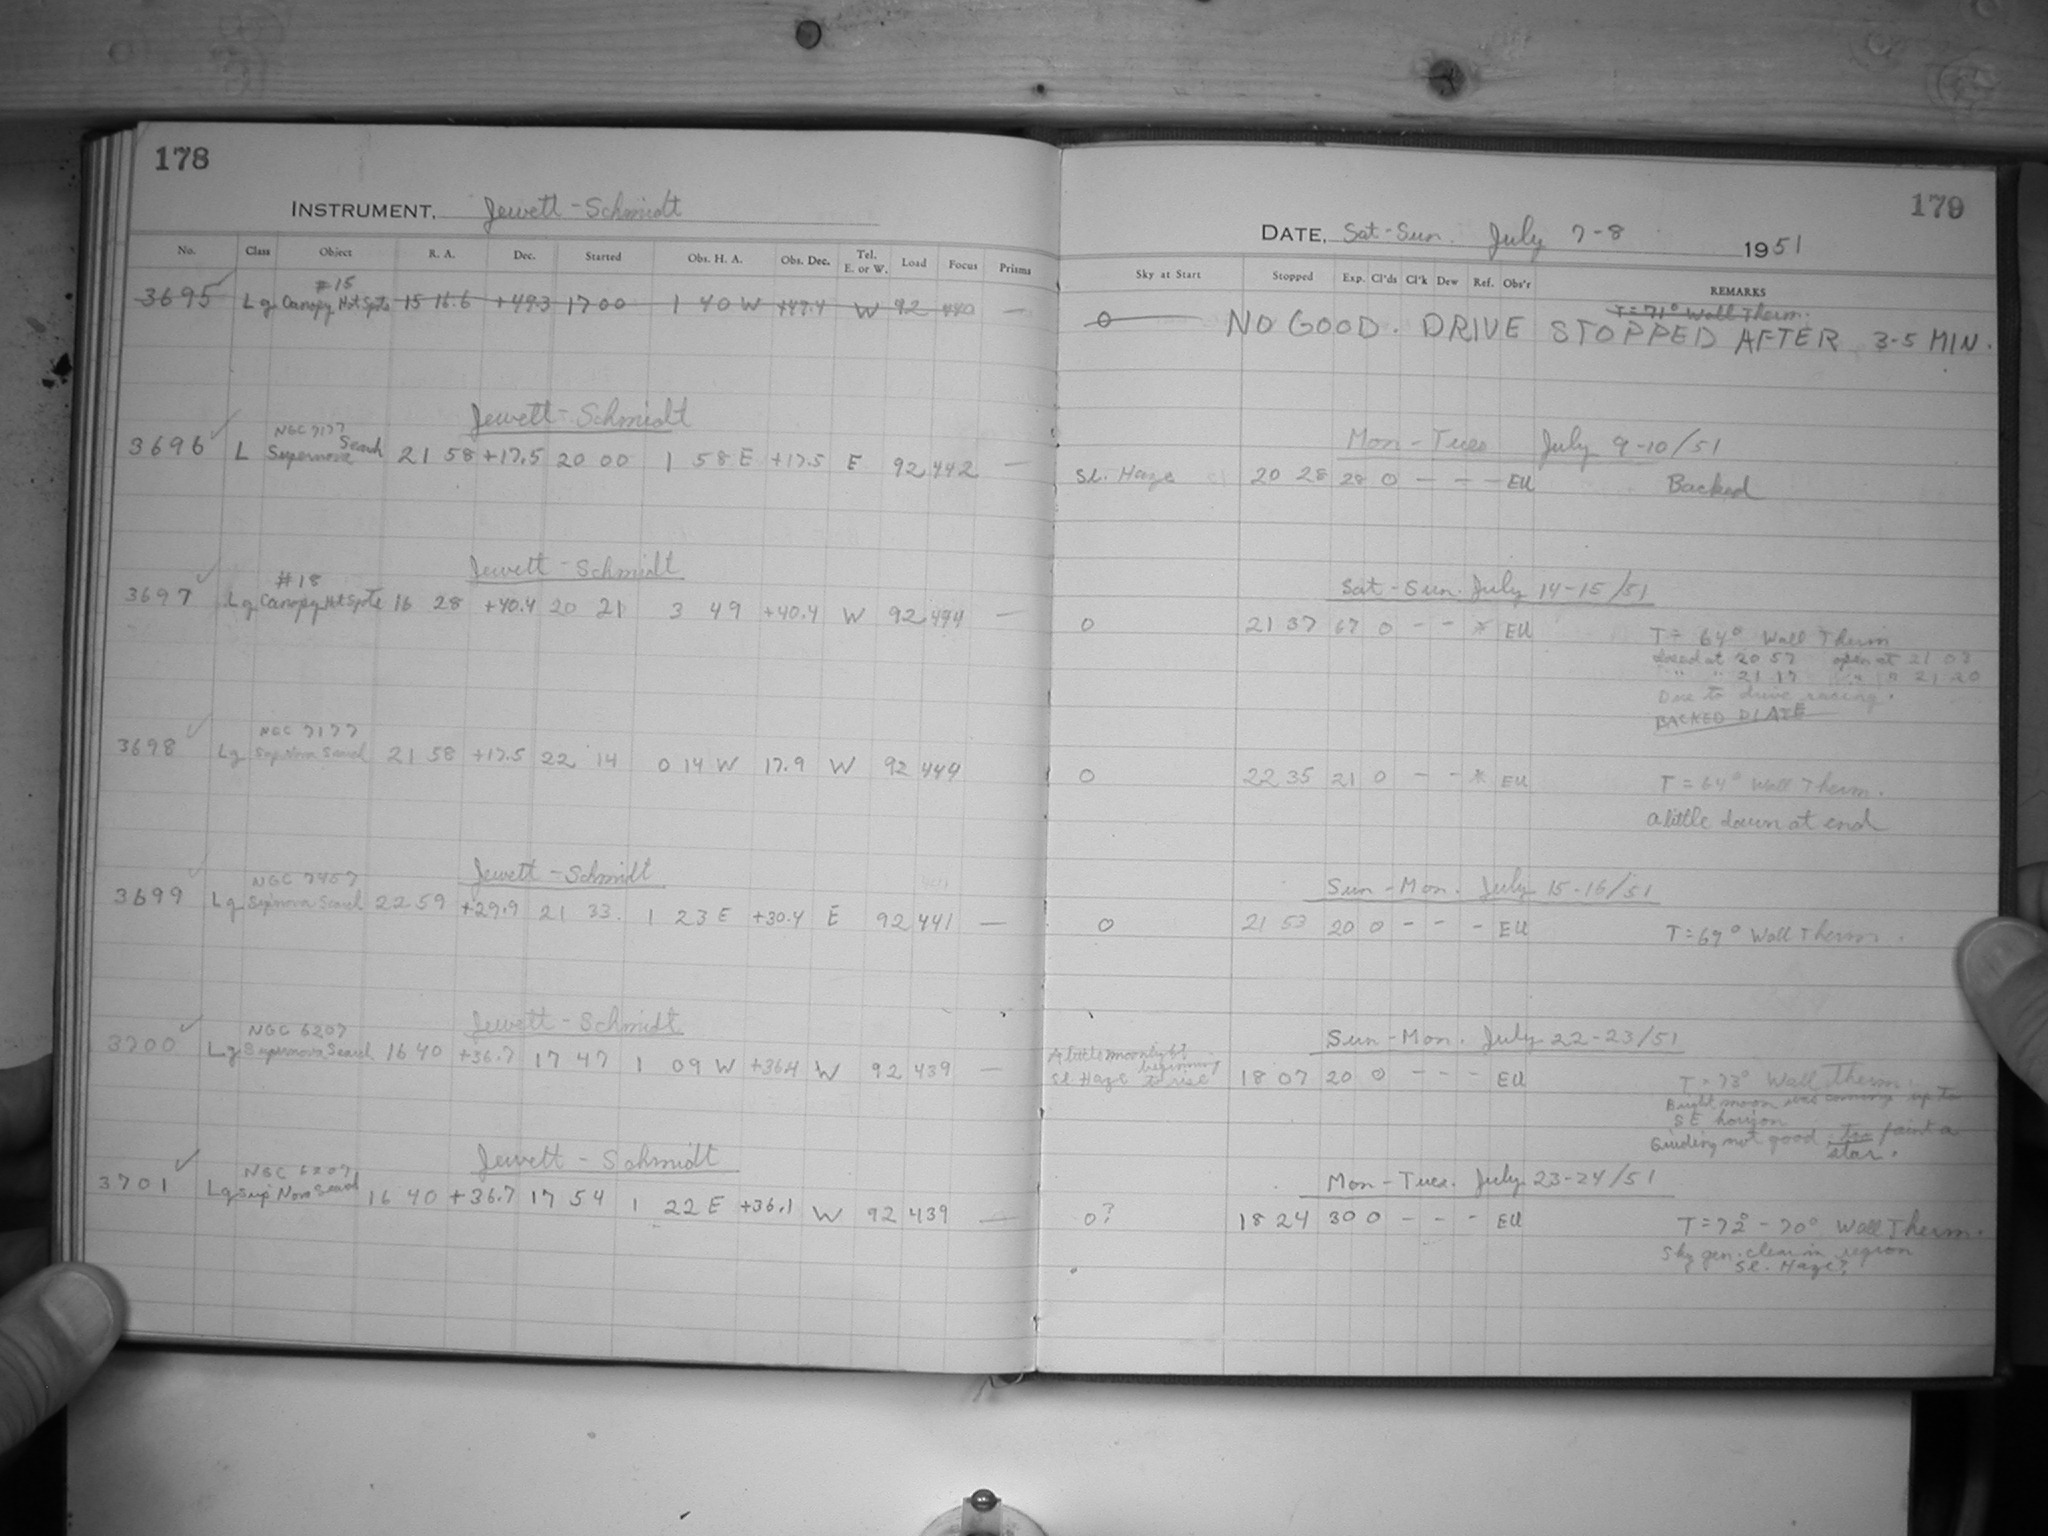 178
INSTRUMENT. Jewett-Schmidt
No. Class Object R. A. Dec. Started Obs. H. A. Obs. Dec. Tel. E. or W. Load Focus Prisms
#15
3695 Lg Canopy Hot Spots 15 16.6 +49.3 17 00 1 40 W +47.4 W 92 440 —
Jewett-Schmidt
NGC 7177
3696 L Supernova Search 21 58 +17.5 20 00 1 58 E +17.5 E 92 442 —
Jewett-Schmidt
#18
3697 Lg Canopy Hot Spots 16 28 +40.4 20 21 3 49 +40.4 W 92 494 —
NGC 7177
3698 Lg Sup Nova Search 21 58 +17.5 22 14 0 14 W 17.9 W 92 449
Jewett-Schmidt
NGC 7457
3699 Lg Supnova Search 22 59 +29.9 21 33 1 23 E +30.4 E 92 441 —
Jewett-Schmidt
NGC 6207
3700 Lg Supernova Search 16 40 +36.7 17 47 1 09 W +36.4 W 92 439 —
Jewett-Schmidt
NGC 6207
3701 Lg Sup Nova Search 16 40 +36.7 17 54 1 22 E +36.1 W 92 439 —
179
DATE. Sat-Sun. July 7-8 1951
Sky at Start Stopped Exp. Cl'ds Cl'k Dew Ref. Obs'r REMARKS
T=71° Wall Therm.
0 NO GOOD. DRIVE STOPPED AFTER 3-5 MIN.
Mon-Tues July 9-10/51
Sl. Haze 20 28 28 0 — — — EU Backed
Sat-Sun. July 14-15/51
0 21 37 67 0 - - * EU T= 64° Wall Therm
closed at 20 57 open at 21 03
" " 21 17 " " 21 20
Due to drive racing.
BACKED PLATE
0 22 35 21 0 - - * EU T=64° Wall Therm.
a little dawn at end
Sun-Mon. July 15-16/51
0 21 53 20 0 - - - EU T=69° Wall Therm.
Sun-Mon. July 22-23/51
A little moonlight beginning to rise
Sl. Haze 18 07 20 0 - - - EU T=73° Wall Therm.
Bright moon was coming up to
SE horizon
Guiding not good, too faint a
star.
Mon-Tues. July 23-24/51
0? 18 24 30 0 - - - EU T=72°-70° Wall Therm.
Sky gen. clear in region
Sl. Haze?